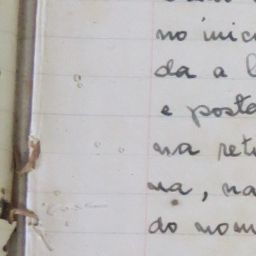 no inic
da a l
e posta
na ret
na, na
do nom